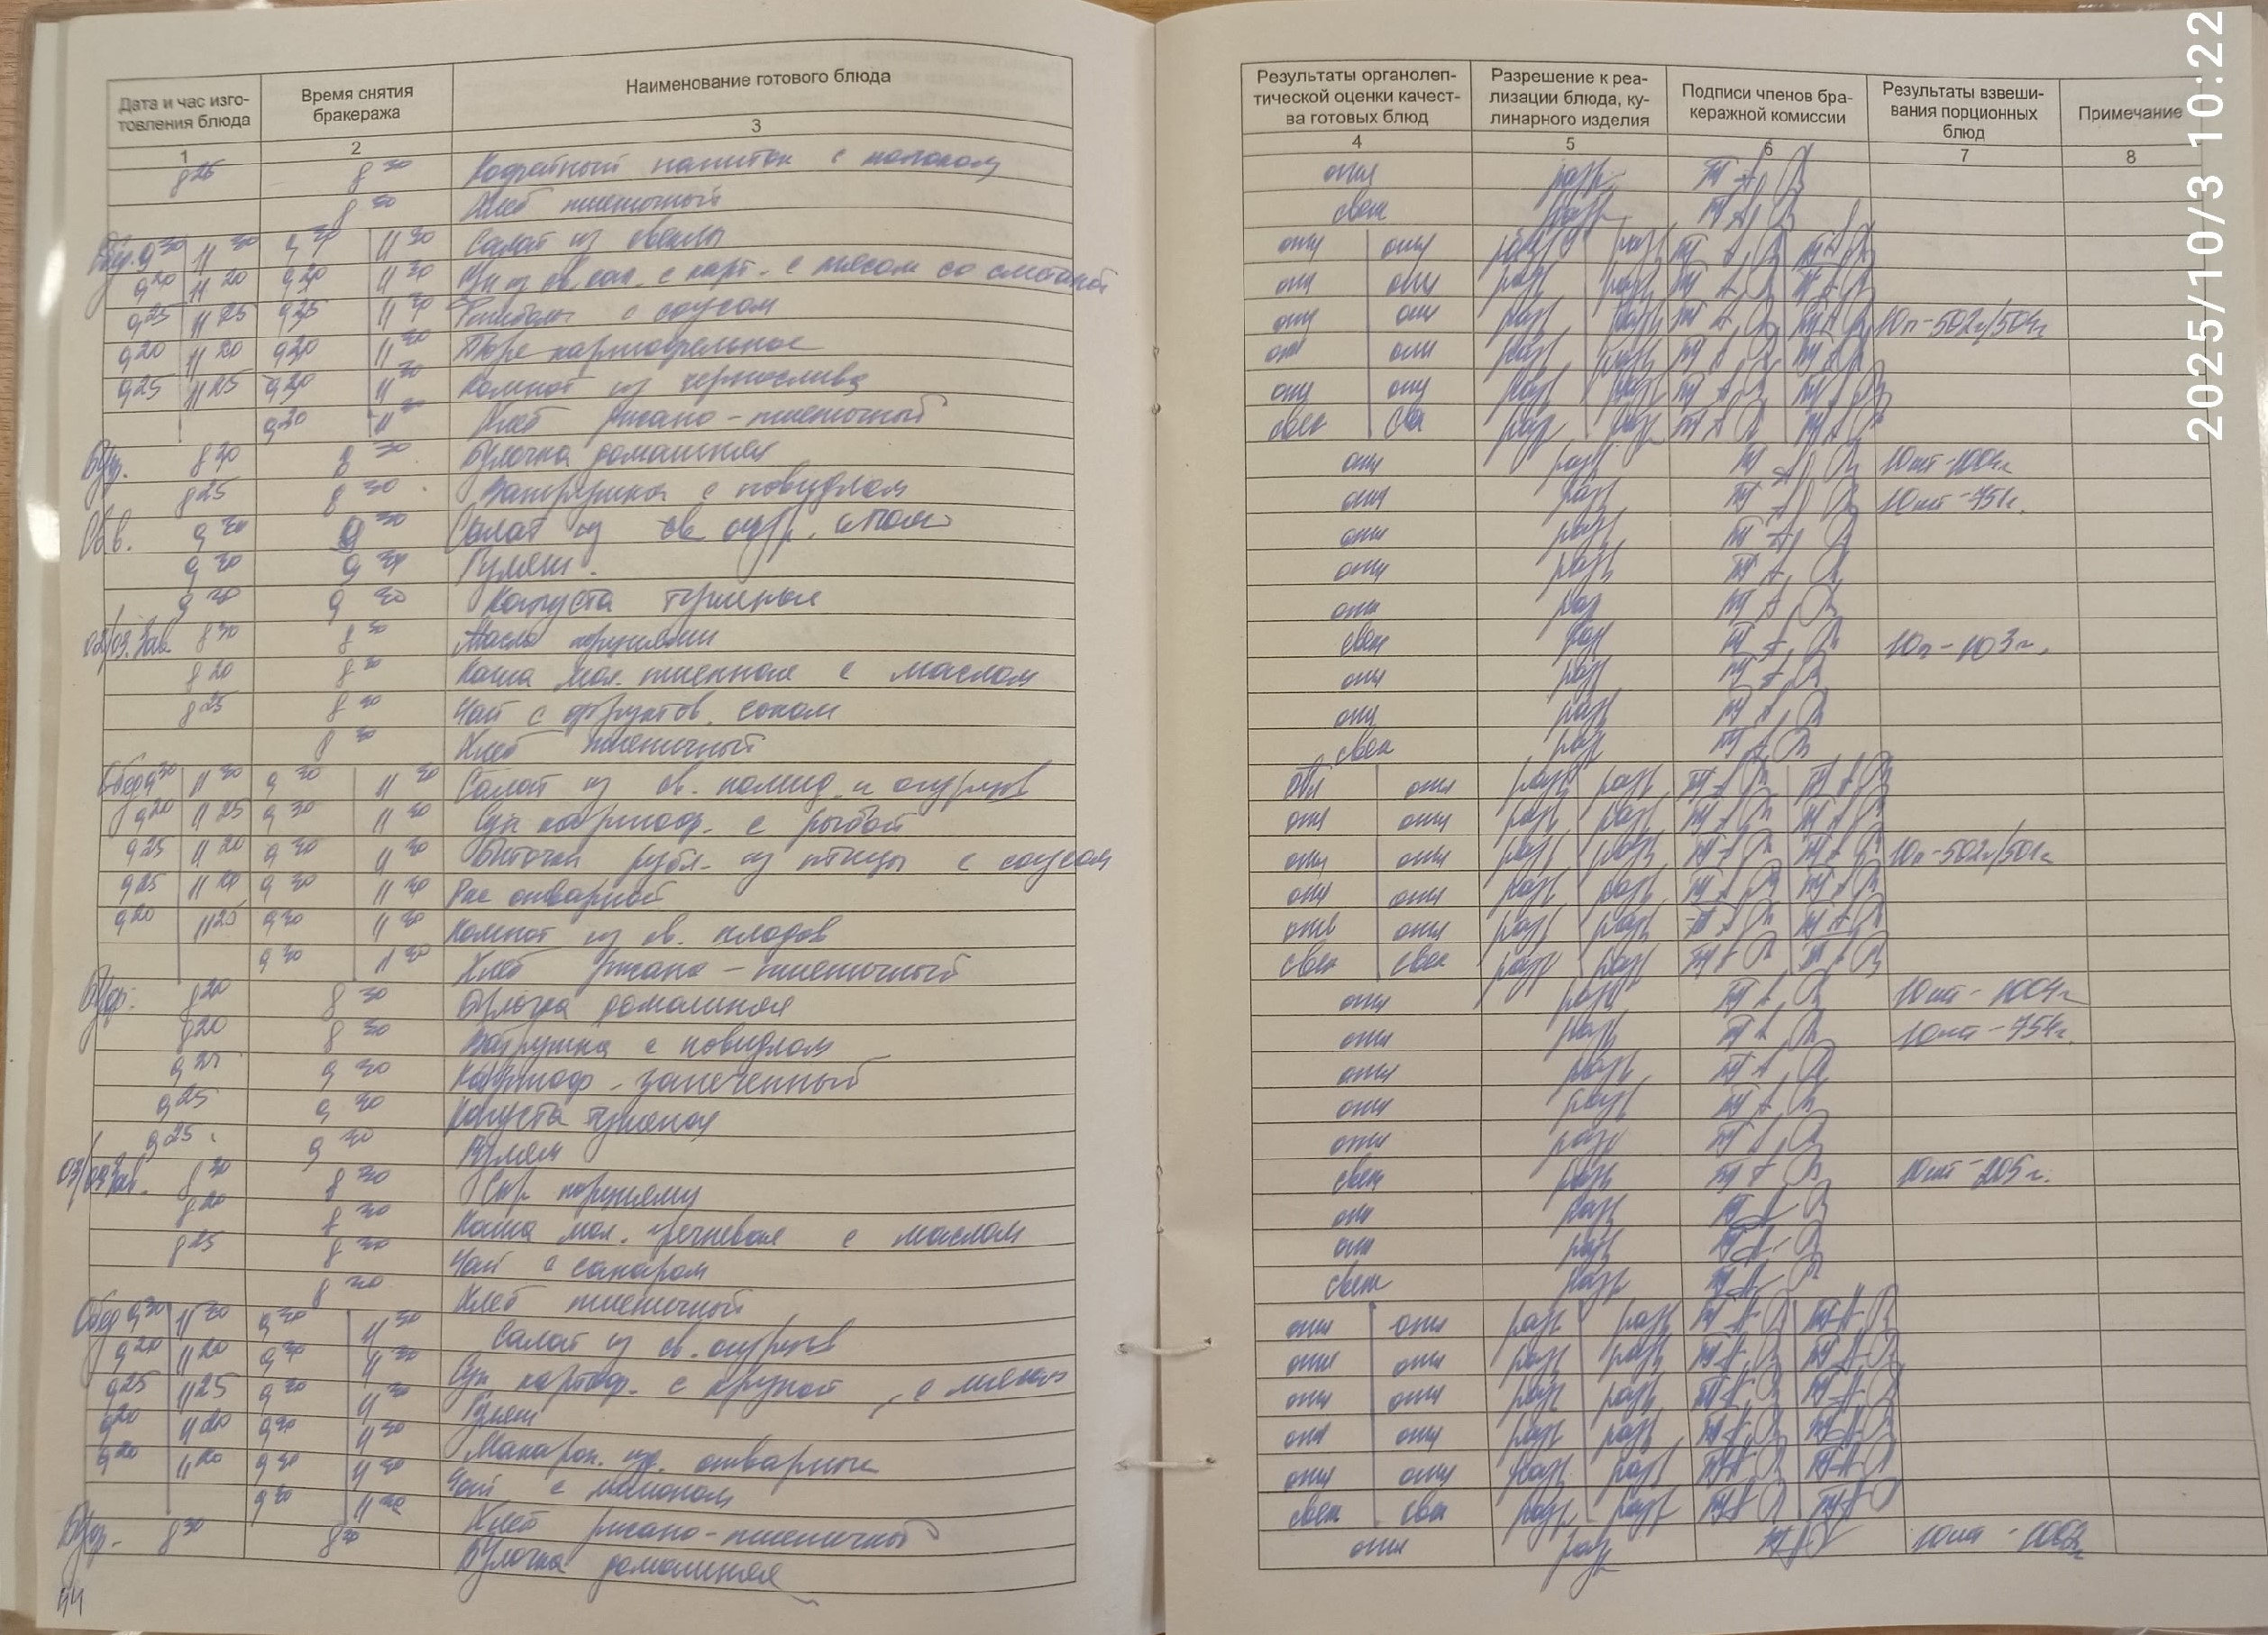 Дата и час изго-
товления блюда
Время снятия
бракеража
Наименование готового блюда
1 2 3
8 25 8 30 Кофейный напиток с молоком
8 30 Хлеб пшеничный
9 30 11 30 9 30 11 30 Салат из свеклы
9 20 11 20 9 30 11 30 с карт. с мясом со сметаной
9 25 11 25 9 30 11 30 с соусом
9 20 11 20 9 30 11 30 Пюре картофельное
9 25 11 25 9 30 11 30 Компот из чернослива
9 30 11 30 Хлеб ржано-пшеничный
Буф. 8 20 8 30 Булочка домашняя
8 25 8 30 Ватрушка с повидлом
9 30 Салат из св огур.
9 20 9 30 Гуляш.
9 20 9 30 Капуста тушеная
Зав. 8 30 8 30 Масло порциями
8 20 8 30 Каша мол. пшенная с маслом
8 25 8 30 Чай с фруктов. соком
8 30 Хлеб пшеничный
Обед 9 30 11 30 9 30 11 30 Салат из св. помид. и огурцов
9 20 11 25 9 30 11 30 Суп картоф. с рыбой
9 25 11 20 9 30 11 30 Биточки рубл. из птицы с соусом
9 25 11 20 9 30 11 30 Рис отварной
9 20 11 25 9 30 11 30 Компот из св. плодов
9 30 11 30 Хлеб ржано-пшеничный
Буф. 8 20 8 30 Булочка домашняя
8 20 8 30 Ватрушка с повидлом
9 25 9 30 Картоф. запеченный
9 25 9 30 Капуста тушеная
9 25 9 30 Гуляш
Зав. 8 30 8 30 Сыр порциями
8 20 8 30 Каша мол. гречневая с маслом
8 25 8 30 Чай с сахаром
8 30 Хлеб пшеничный
Обед 9 30 11 30 9 30 11 30 Салат из св. огурцов
9 20 11 20 9 30 11 30 Суп картоф. с крупой, с мясом
9 25 11 25 9 30 11 30 Гуляш
9 20 11 20 9 30 11 30 Макарон. изд. отварные
9 20 11 20 9 30 11 30 Чай с лимоном
9 30 11 30 Хлеб ржано-пшеничный
Буф. 8 30 8 30 Булочка домашняя
44
Результаты органолеп-
тической оценки качест-
ва готовых блюд
Разрешение к реа-
лизации блюда, ку-
линарного изделия
Подписи членов бра-
керажной комиссии
Результаты взвеши-
вания порционных
блюд
Примечание
4 5 6 7 8
отл разр
свеж разр
отл отл разр разр
отл отл разр разр
отл отл разр разр 10п-502г/504г
отл отл разр разр
отл отл разр разр
свеж све разр разр
отл разр 10шт-1004г
отл разр 10шт-751г.
отл разр
отл разр
отл разр
свеж разр 10п-103г.
отл разр
отл разр
свеж разр
отл отл разр разр
отл отл разр разр
отл отл разр разр 10п-502г/501г
отл отл разр разр
отл отл разр разр
свеж свеж разр разр
отл разр 10шт-1004г
отл разр 10шт-754г.
отл разр
отл разр
отл разр
свеж разр 10шт-205г.
отл разр
отл разр
свеж разр
отл отл разр разр
отл отл разр разр
отл отл разр разр
отл отл разр разр
отл отл разр разр
свеж свеж разр разр
отл разр
2025/10/3 10:22